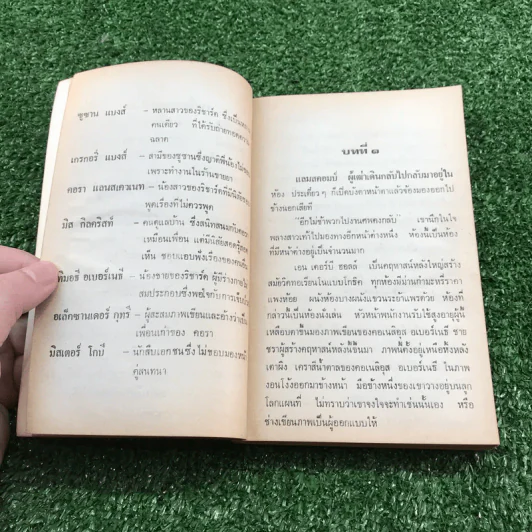 ซูซาน แบงส์ – หลานสาวของริชาร์ด ซึ่งเป็น
คนเดียว ที่ได้รับถ่ายทอดความ
ฉลาด
เกรกอรี่ แบงส์ – สามีของซูซานซึ่งญาติพี่น้องไม่
เพราะทำงานในร้านขายยา
คอรา แลนสเควเนท – น้องสาวของริชาร์ดที่มีนิสัย
พูดเรื่องที่ไม่ควรพูด
มิส กิลคริสท์ – คนดูแลบ้าน ซึ่งสนิทสนมกับ
เหมือนเพื่อน แต่มีนิสัยสอดรู้สอด
เห็น ชอบแอบฟังเรื่องของคนอื่น
ทิมอธี อเบอร์เนธี – น้องชายของริชาร์ด ผู้มีร่างกายไม่
สมประกอบซึ่งพอใจกับการเจ็บป่วย
อเล็กซานเดอร์ กุทรี – ผู้สะสมภาพเขียนและอ้างว่าเป็น
เพื่อนเก่าแก่ ของ คอรา
มิสเตอร์ โกบี – นักสืบเอกชนซึ่งไม่ชอบมองหน้า
คู่สนทนา
บทที่ ๑
แลมสคอมบ์ ผู้เฒ่าเดินกลับไปกลับมาอยู่ใน
ห้อง ประเดี๋ยวๆ ก็เปิดบังตาหน้าต่างแล้วจ้องมองออกไป
ข้างนอกเสียที
"อีกไม่ช้าพวกไปงานศพคงกลับ" เขานึกในใจ
พลางสาวเท้าไปมองทางอีกหน้าต่างหนึ่ง ห้องนั้นเป็นห้อง
ที่มีหน้าต่างอยู่เป็นจำนวนมาก
เอน เดอร์บี ฮอลล์ เป็นคฤหาสน์หลังใหญ่สร้าง
สมัยวิคทอเรียนในแบบโกธิค ทุกห้องมีม่านกำมะหยี่ราคา
แพงห้อย ผนังห้องบางผนังแขวนระย้าแพรด้วย ห้องที่
กล่าวนั้นเป็นห้องนั่งเล่น หัวหน้าพนักงานรับใช้สูงอายุผู้นี้
เหลือบตาขึ้นมองภาพเขียนของคอเนลิอุส อเบอร์เนธี ชาย
ชราผู้สร้างคฤหาสน์หลังนี้ขึ้นมา ภาพนั้นตั้งอยู่เหนือหิ้งหลัง
เตาผิง เคราสีน้ำตาลของคอเนลิอุส อเบอร์เนธี ในภาพ
งอนโง้งออกมาข้างหน้า มือข้างหนึ่งของเขาวางอยู่บนลูก
โลกแผนที่ ไม่ทราบว่าเขาจงใจจะทำเช่นนั้นเอง หรือ
ช่างเขียนภาพเป็นผู้ออกแบบให้